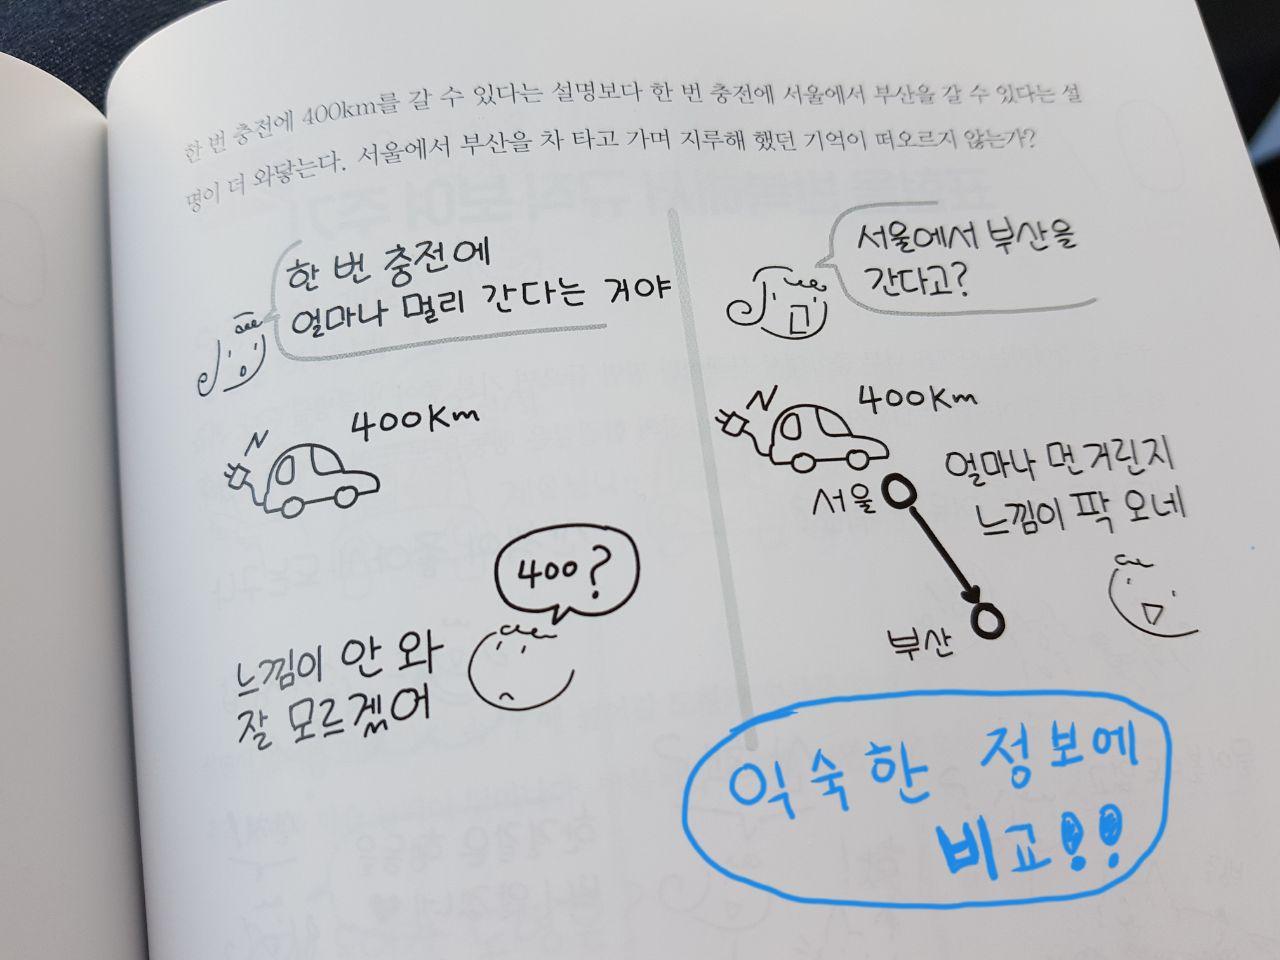 한 번 충전에 400km를 갈 수 있다는 설명보다 한 번 충전에 서울에서 부산을 갈 수 있다는 설
명이 더 와닿는다. 서울에서 부산을 차 타고 가며 지루해 했던 기억이 떠오르지 않는가?
한 번 충전에
얼마나 멀리 간다는 거야
400Km
400?
느낌이 안 와
잘 모르겠어
서울에서 부산을
간다고?
400Km
서울
얼마나 먼 거린지
느낌이 팍 오네
부산
익숙한 정보에
비교!!